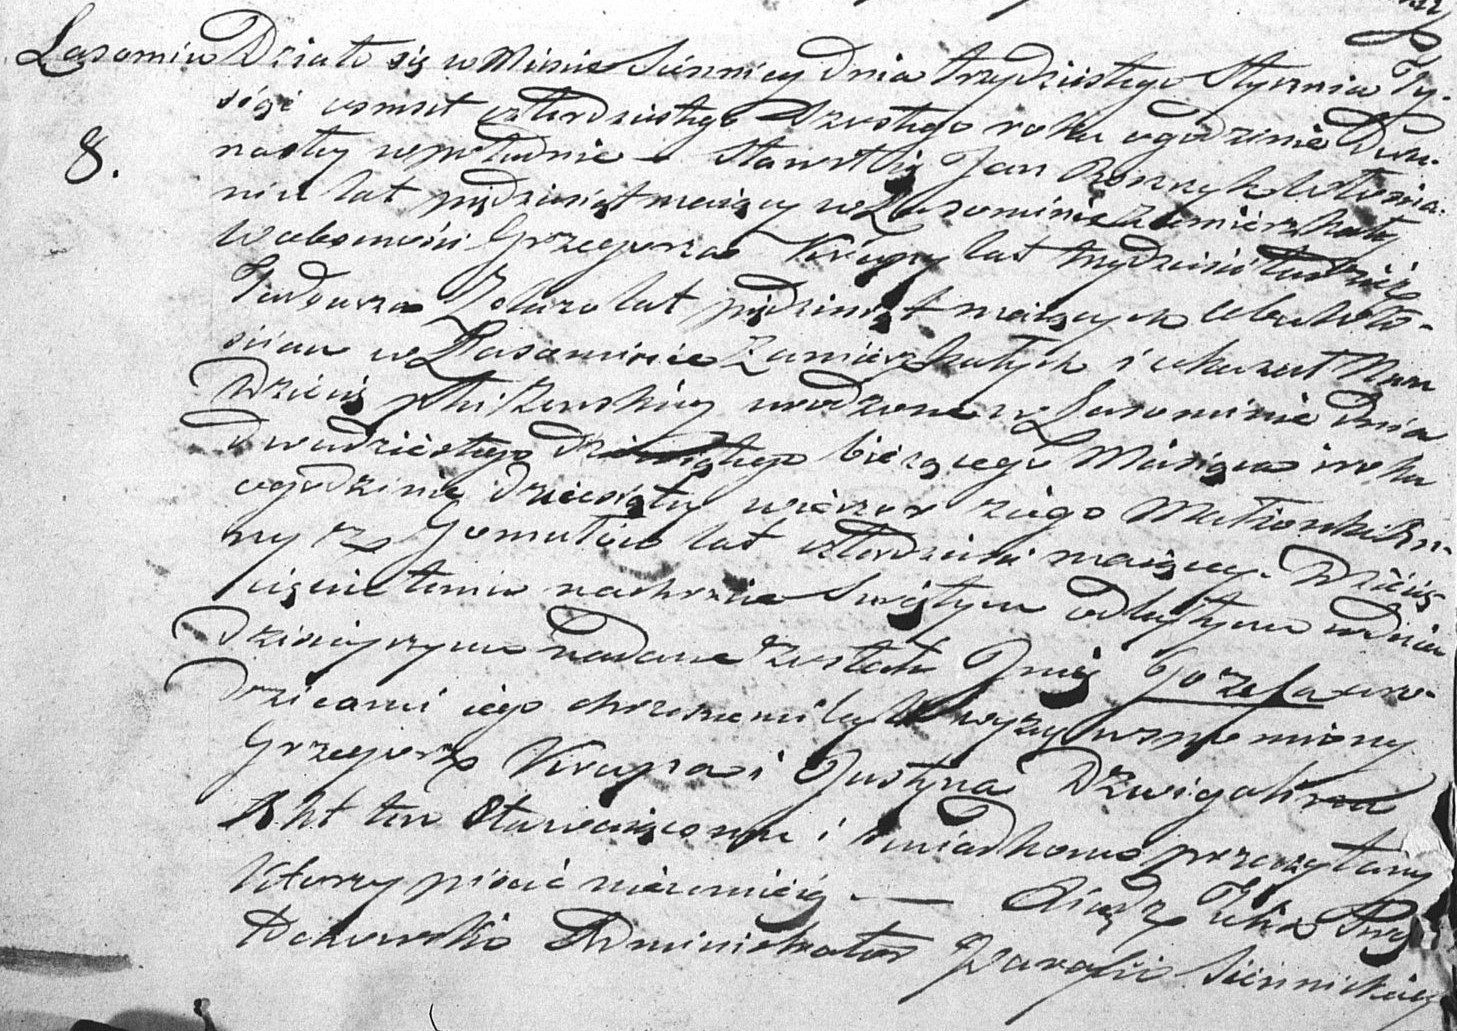 Lasomin Działo się w Mieście Siennicy dnia trzydziestego Stycznia Ty-
8.
siąc osmset czterdziestego szostego roku o godzinie Dwu-
nastey w południe — Stawił się Jan włościa-
nin lat pięćdziesiąt maiący w Lasominie zamieszkały
w obecności Grzegorza Krupy lat trzydzieści tudzież
Tadeusza lat pięćdziesiąt maiących obu wło-
ścian w Lasominie zamieszkałych i okazał Nam
Dziecię płci żeńskiey urodzone w Lasominie dnia
dwudziestego dziewiątego bieżącego Miesiąca i roku
o godzinie dziesiątey wieczor z iego Małżonki
ny z Gomułów lat czterdzieści maiącey. Dziecię-
ciu temu na chrzcie Świętym odbytym w dniu
dzisieyszym nadane zostało Imię Jozefa a ro-
dzicami iego chrzesnemi byli wyżey wspomniony
Grzegorz Krupa i Justyna Dzwigałowa
Akt ten Stawaiącemu i świadkom przeczytany
Ktorzy pisać nieumieią — Xiądz
Administrator Parafii Siennickiey